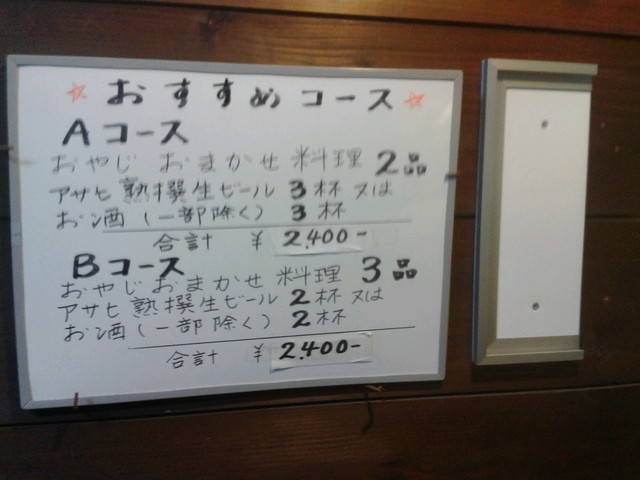 ☆ おすすめコース ☆
Aコース
おやじ おまかせ 料理 2品
アサヒ 熟撰生ビール 3杯 又は
お酒(一部除く) 3杯
合計 ¥2,400-
Bコース
おやじおまかせ 料理 3品
アサヒ 熟撰生ビール 2杯 又は
お酒(一部除く) 2杯
合計 ¥2,400-